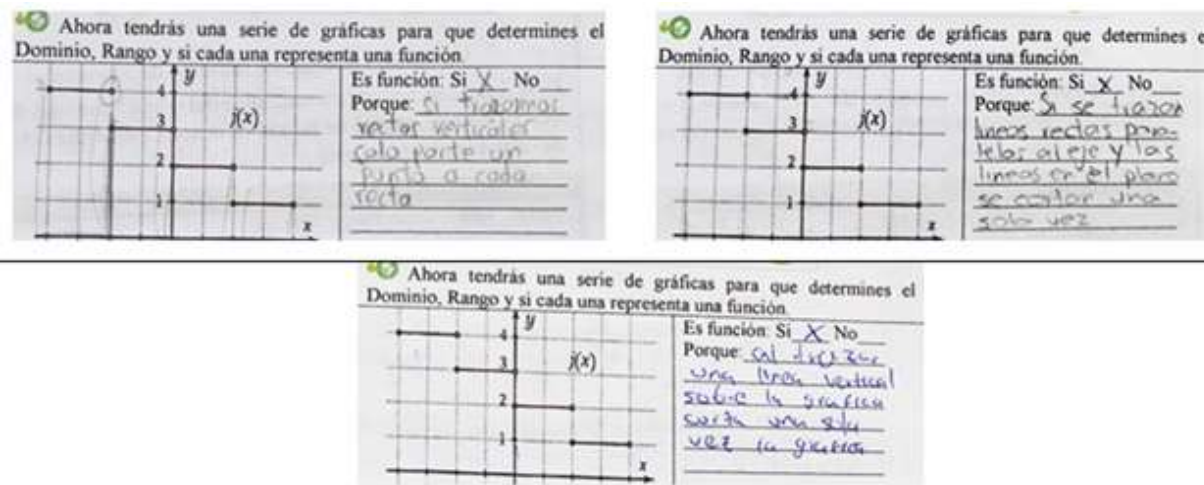 Ahora tendrás una serie de gráficas para que determines el
Dominio, Rango y si cada una representa una función.
y
4
3
2
1
j(x)
x
Es función: Si X No
Porque: Si trazamos
rectas verticales
solo parte un
punto a cada
recta
Ahora tendrás una serie de gráficas para que determines e
Dominio, Rango y si cada una representa una función.
y
4
3
2
1
j(x)
x
Es función: Si X No
Porque: Si se trazan
lineas rectas para-
lelas al eje y las
lineas en el plano
se cortan una
sola vez
Ahora tendrás una serie de gráficas para que determines el
Dominio, Rango y si cada una representa una función.
y
4
3
2
1
j(x)
x
Es función: Si X No
Porque: al trazar
una linea vertical
sobre la grafica
corta una sola
vez la grafica